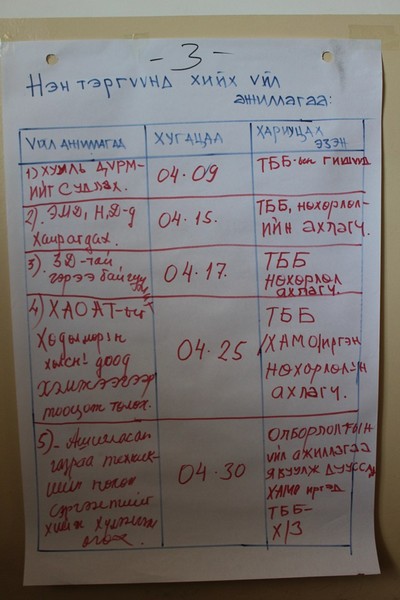 - 3 -
Нэн тэргүүнд хийх үйл
ажиллагаа:
Үйл ажиллагаа
Хугацаа
Хариуцах
эзэн
1) Хууль дүрм-
ийг судлах.
04.09
ТББ-ын гишүүд
2). ЭМД, НД-д
хамрагдах.
04.15.
ТББ, нөхөрлөл-
ийн ахлагч.
3). ЗД-тай
гэрээ байгуулах
04.17.
ТББ
нөхөрлөл
ахлагч.
4) ХАОАТ-ыг
Хөдөлмөрийн
хөлсний доод
хэмжээгээр
тооцож төлөх.
04.25
ТББ
/ХАМО/иргэн
нөхөрлөлийн
ахлагч.
5)- Ашигласан
газраа
нөхөн
сэргээлтийг
хийж хүлээлгэн
өгөх.
04.30
Олборлолтын
үйл ажиллагаа
явуулж дууссан
ХАМО иргэд
ТББ-
Х/З